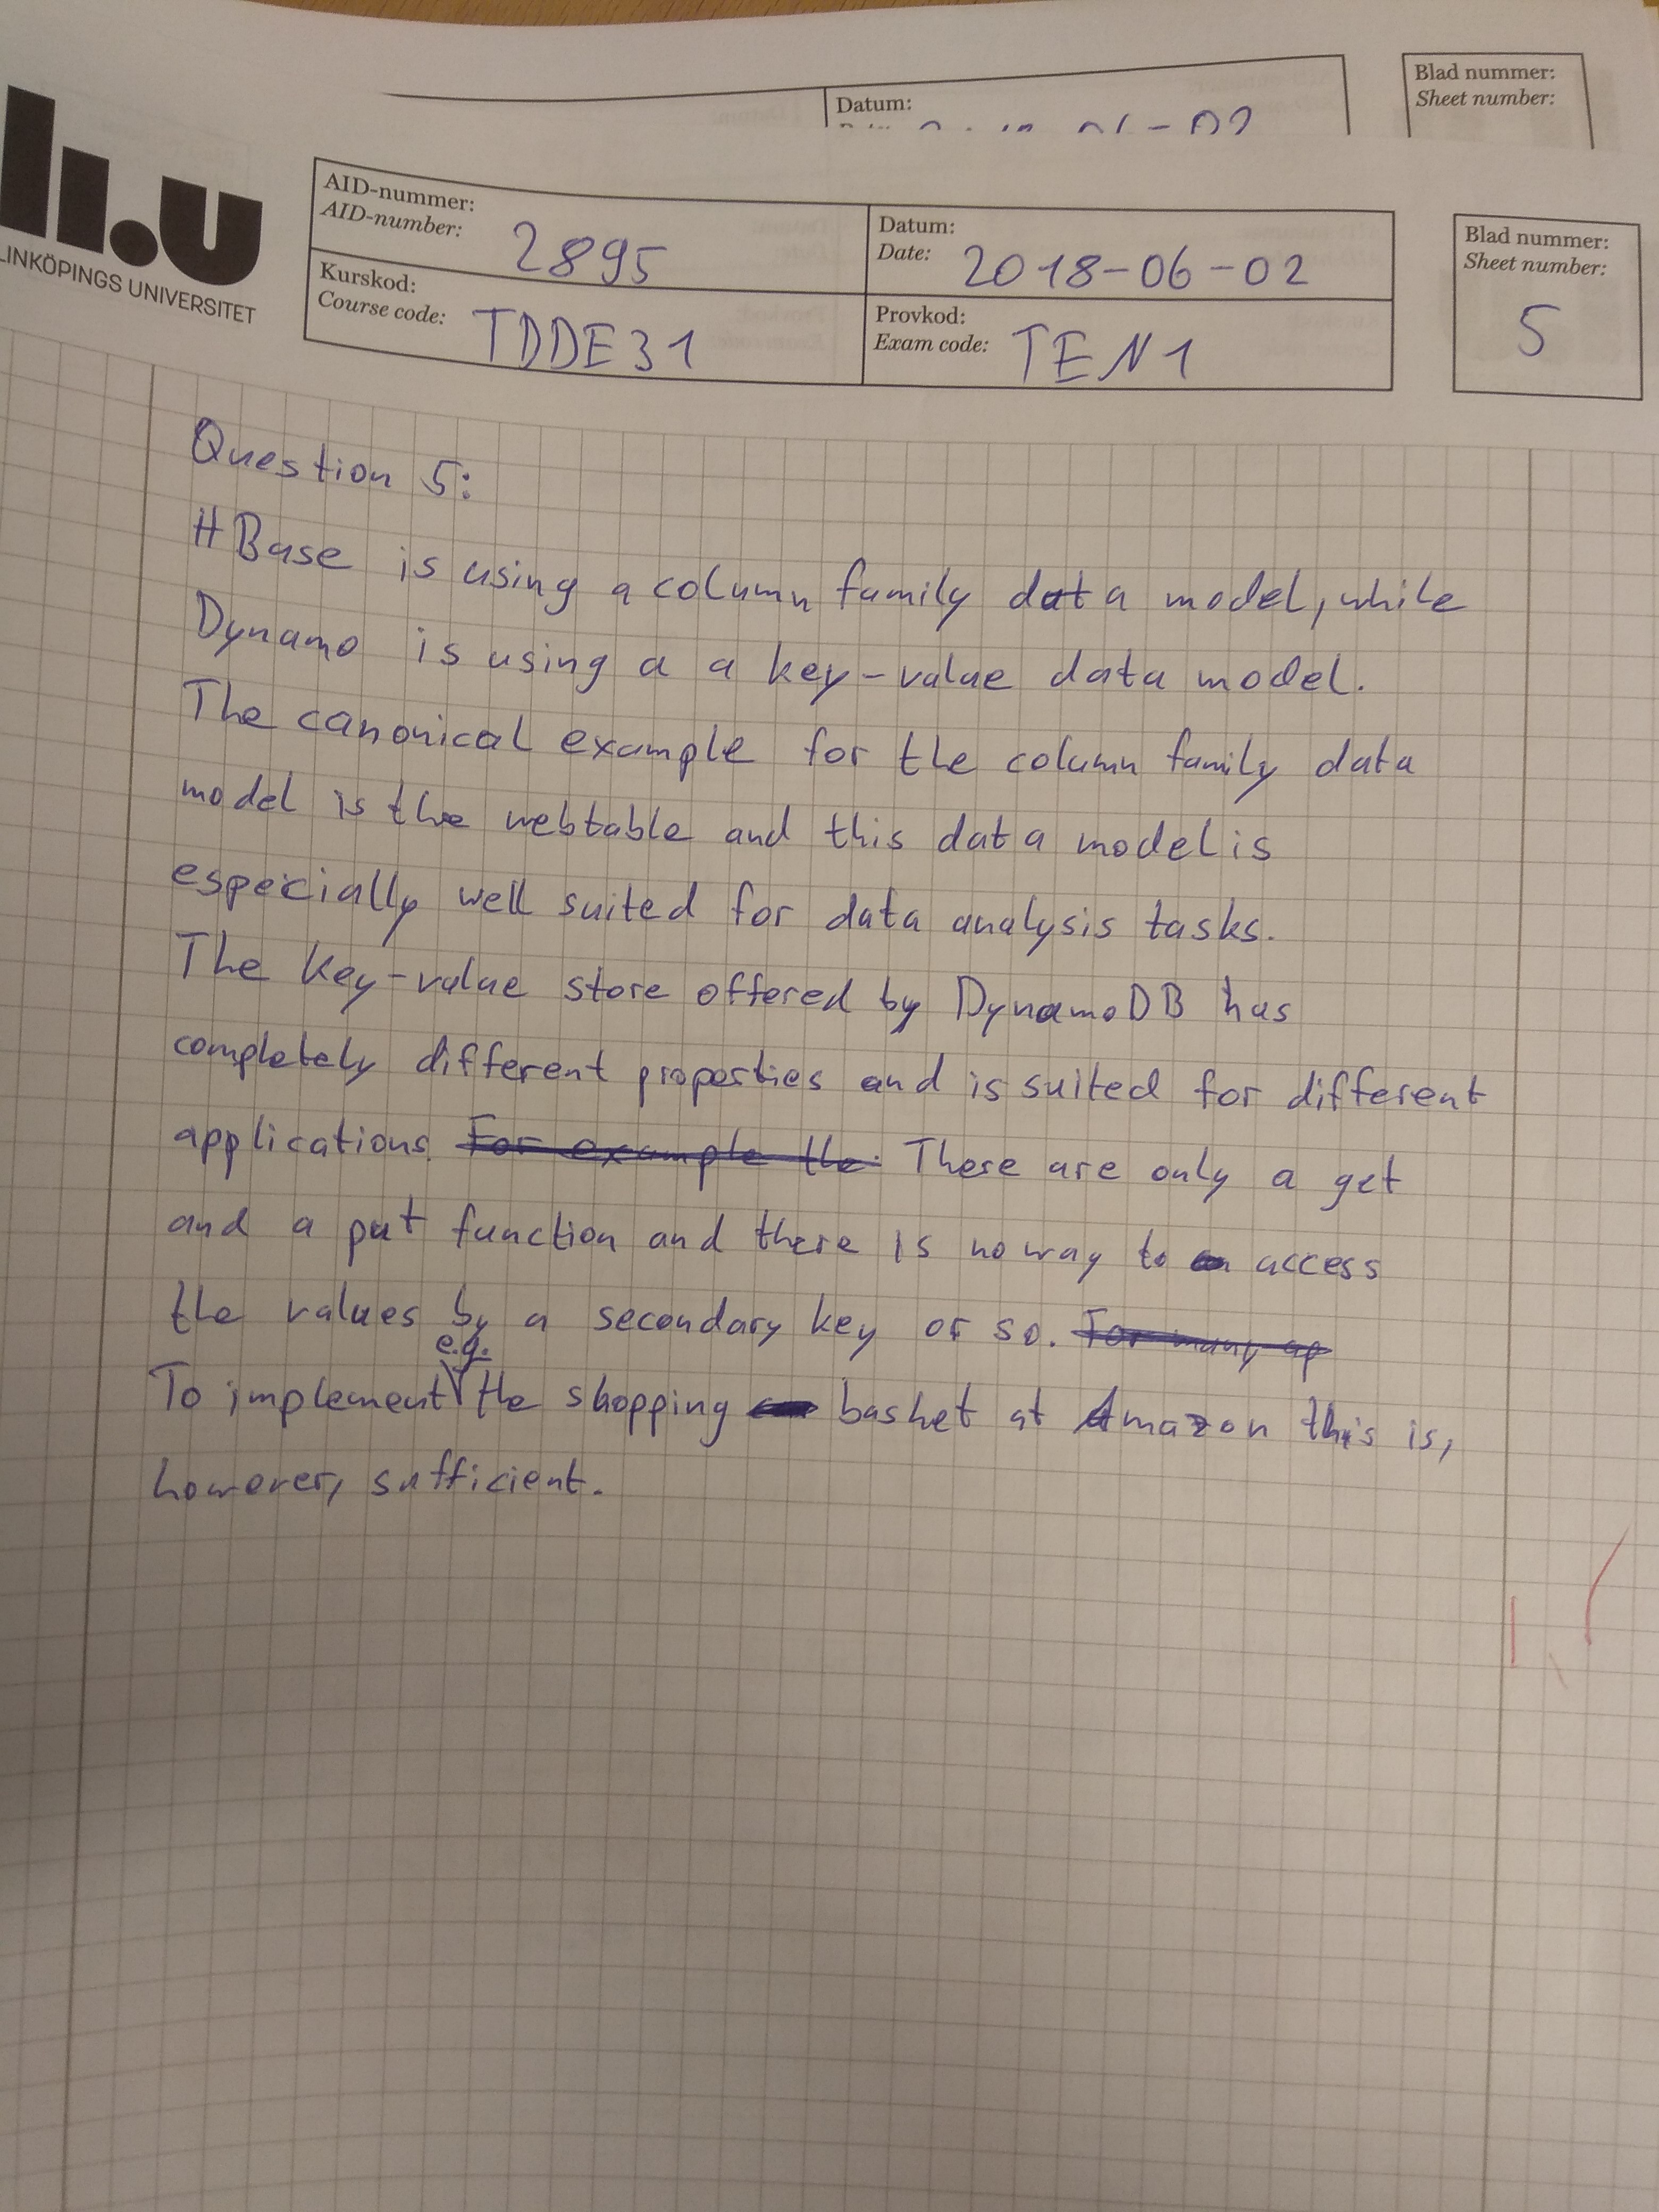 Datum:
Blad nummer:
Sheet number:
li.u
LINKÖPINGS UNIVERSITET
AID-nummer:
AID-number: 2895
Datum:
Date: 2018-06-02
Blad nummer:
Sheet number:
5
Kurskod:
Course code: TDDE31
Provkod:
Exam code: TEN1
Question 5:
HBase is using a column family data model, while
Dynamo is using a a key-value data model.
The canonical example for the column family data
model is the webtable and this data model is
especially well suited for data analysis tasks.
The key-value store offered by DynamoDB has
completely different properties and is suited for different
applications. For example the There are only a get
and a put function and there is no way to access
the values by a secondary key or so. For many ap
e.g.
To implement the shopping basket at Amazon this is,
however, sufficient.